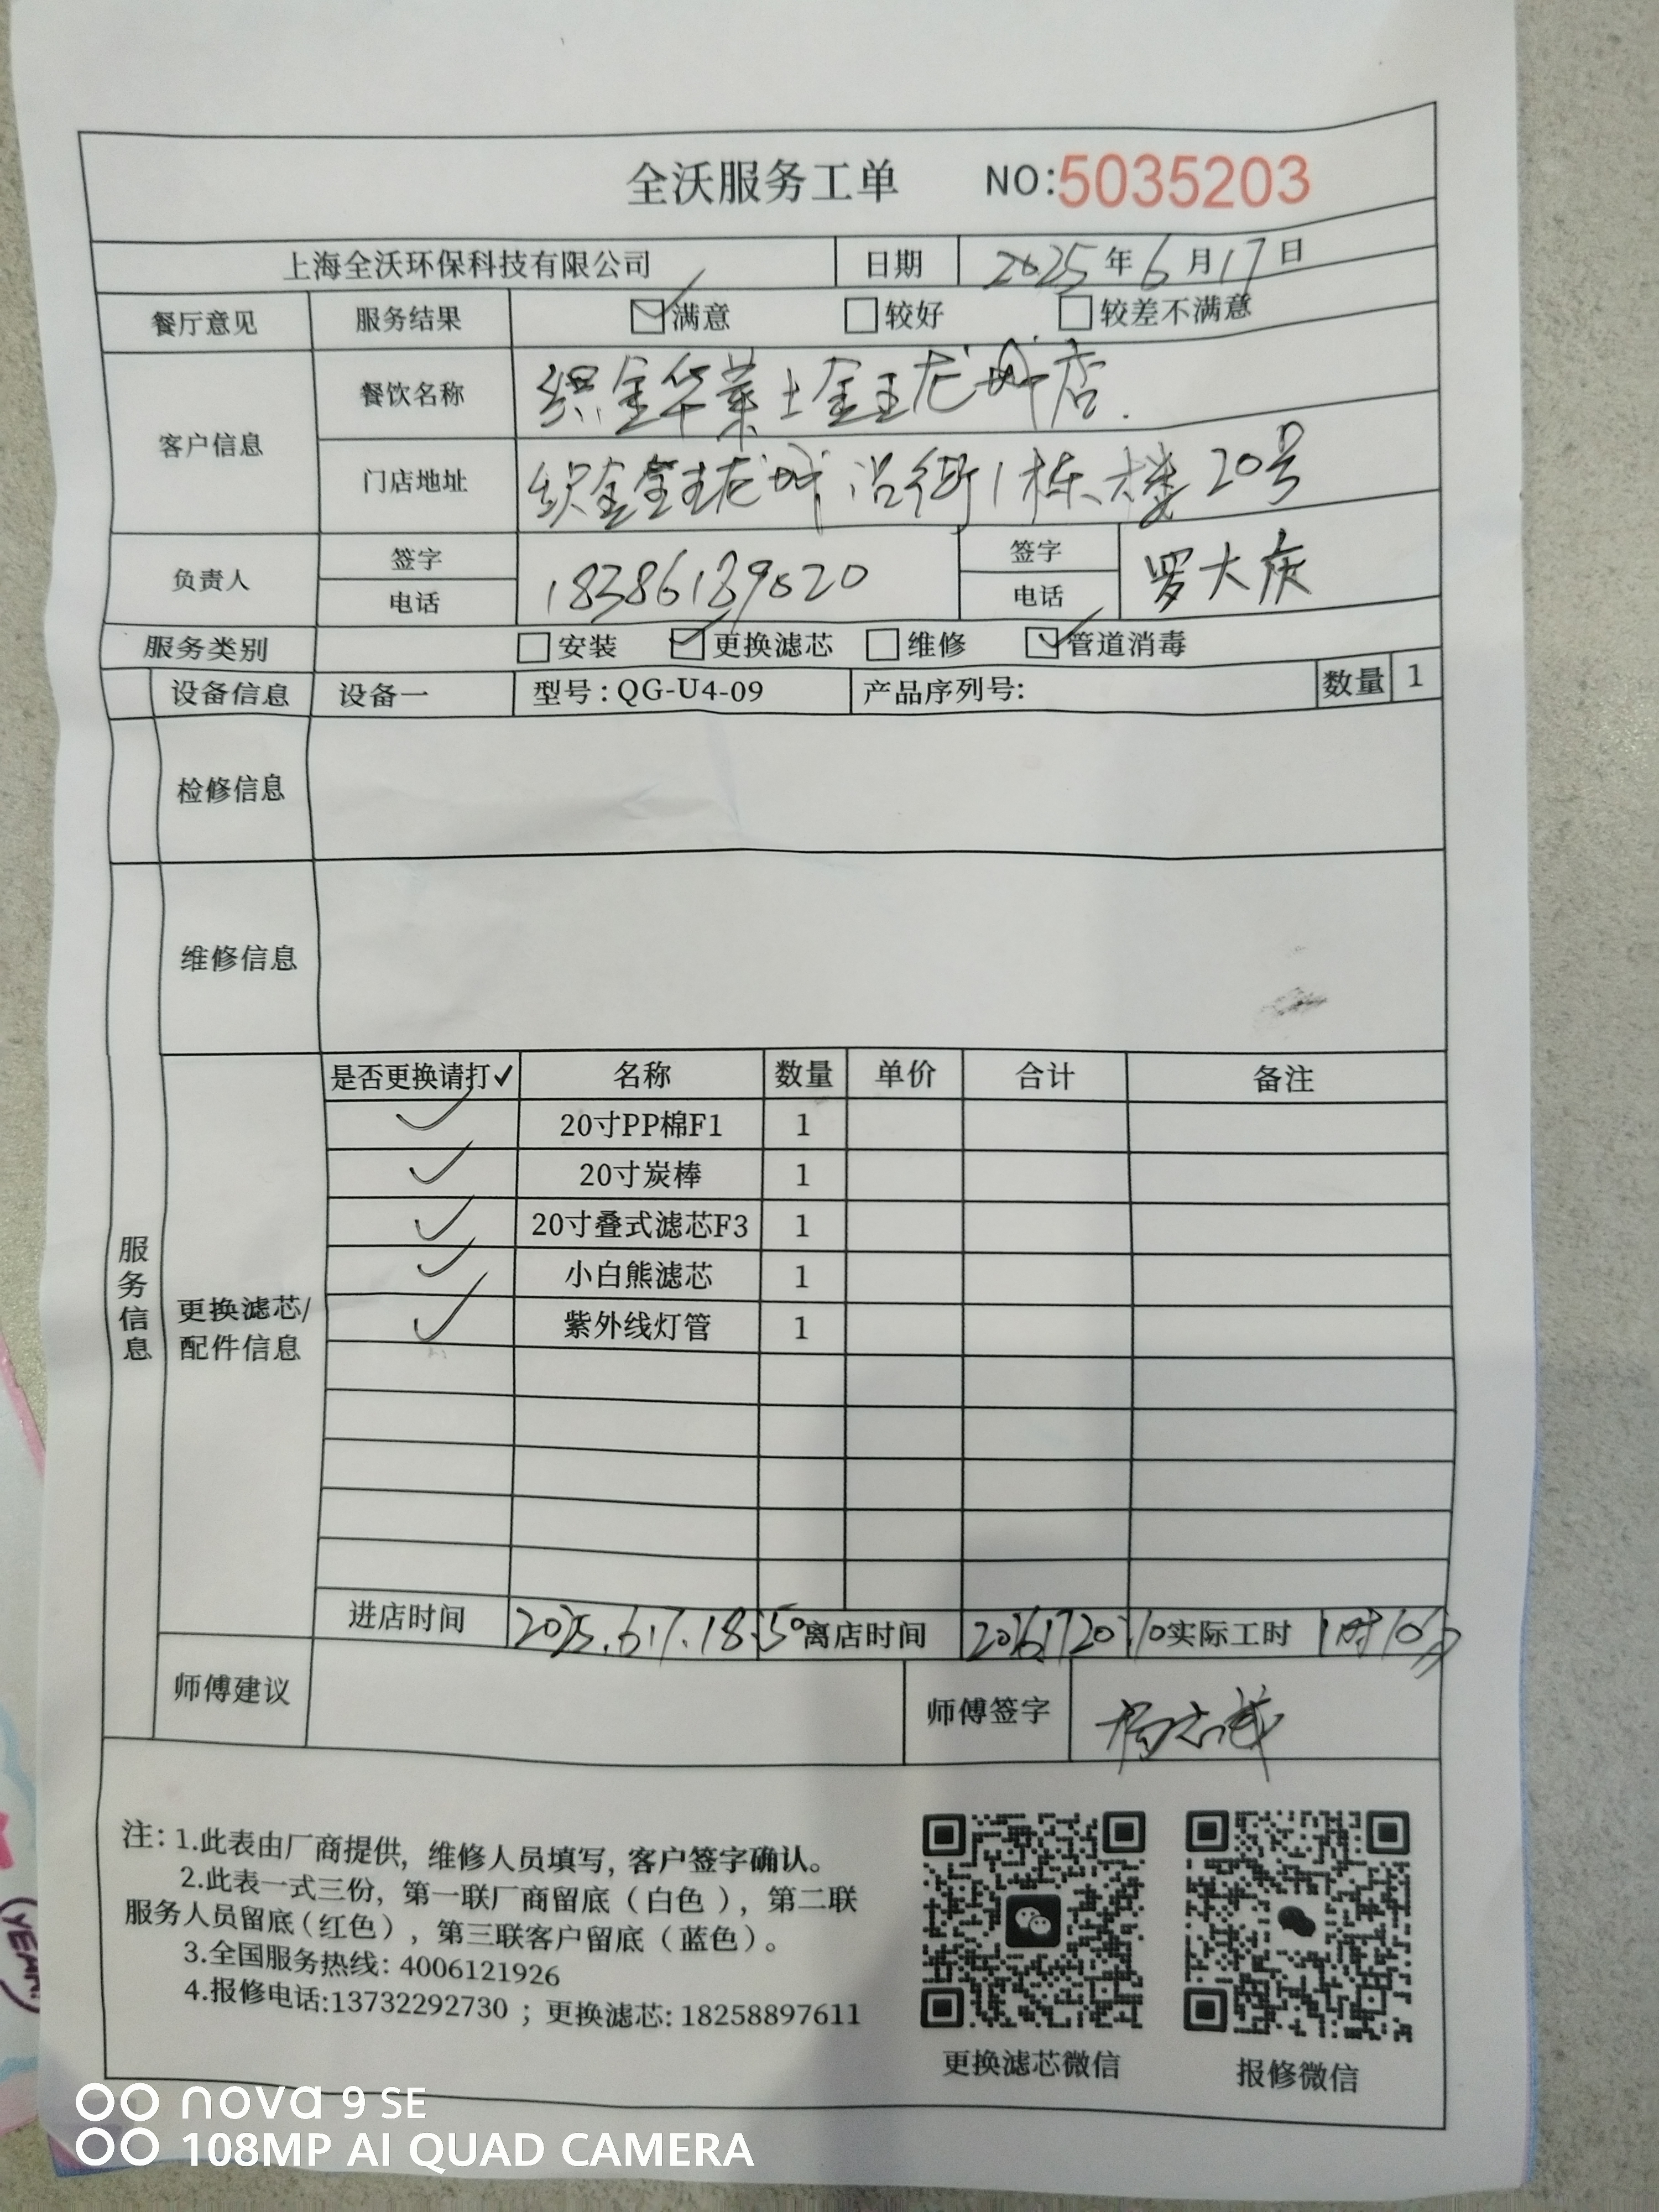 全沃服务工单 NO:5035203
上海全沃环保科技有限公司 日期 2025年6月17日
餐厅意见 服务结果 ☑满意 □较好 □较差不满意
客户信息 餐饮名称 织金华莱士金玉龙城店.
门店地址 织金金玉龙城沿街1栋大楼20号
负责人 签字 电话 18386189020 签字 电话 罗大庆
服务类别 □安装 ☑更换滤芯 □维修 ☑管道消毒
设备信息 设备一 型号:QG-U4-09 产品序列号: 数量 1
检修信息
维修信息
服务信息
更换滤芯/配件信息
是否更换请打✓ 名称 数量 单价 合计 备注
✓ 20寸PP棉F1 1
✓ 20寸炭棒 1
✓ 20寸叠式滤芯F3 1
✓ 小白熊滤芯 1
✓ 紫外线灯管 1
进店时间 2025.6.17.18:50 离店时间 实际工时
师傅建议 师傅签字
注: 1.此表由厂商提供, 维修人员填写, 客户签字确认。
2.此表一式三份, 第一联厂商留底(白色), 第二联
服务人员留底(红色), 第三联客户留底(蓝色)。
3.全国服务热线: 4006121926
4.报修电话:13732292730 ; 更换滤芯: 18258897611
更换滤芯微信 报修微信
nova 9 SE
108MP AI QUAD CAMERA
(YEAH)